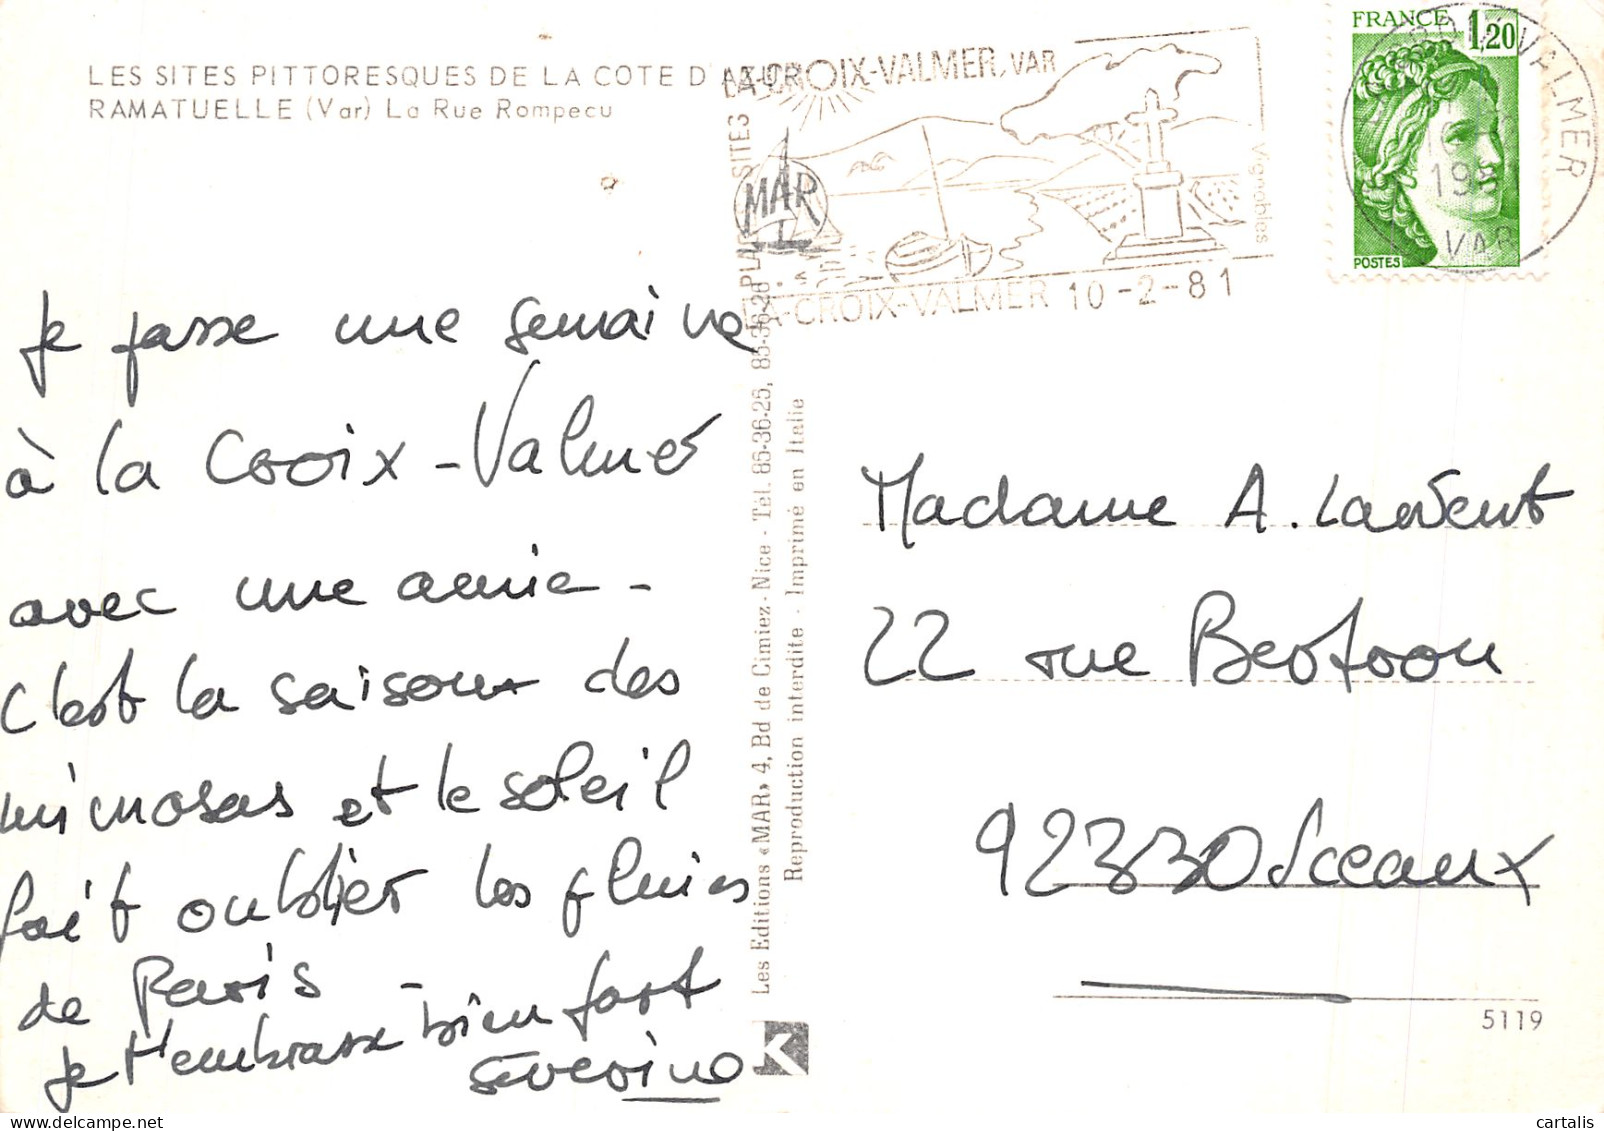 LES SITES PITTORESQUES DE LA COTE D'AZUR
RAMATUELLE (Var) La Rue Rompecu
LA-CROIX-VALMER, VAR
SITES
PLA
Vignobles
LA-CROIX-VALMER 10-2-81
MAR
FRANCE 1,20
POSTES
VALMER
VAR
Je passe une semaine
à la Croix-Valmer
avec une amie -
C'est la saison des
mimosas et le soleil
fait oublier les pluies
de Paris -
je t'embrasse bien fort
Séverine
Les Editions «MAR» 4, Bd de Cimiez - Nice - Tél. 85-36-25, 85-36-26
Reproduction interdite - Imprimé en Italie
Madame A. Laurent
22 rue Bertron
92330 Sceaux
5119
cartalis